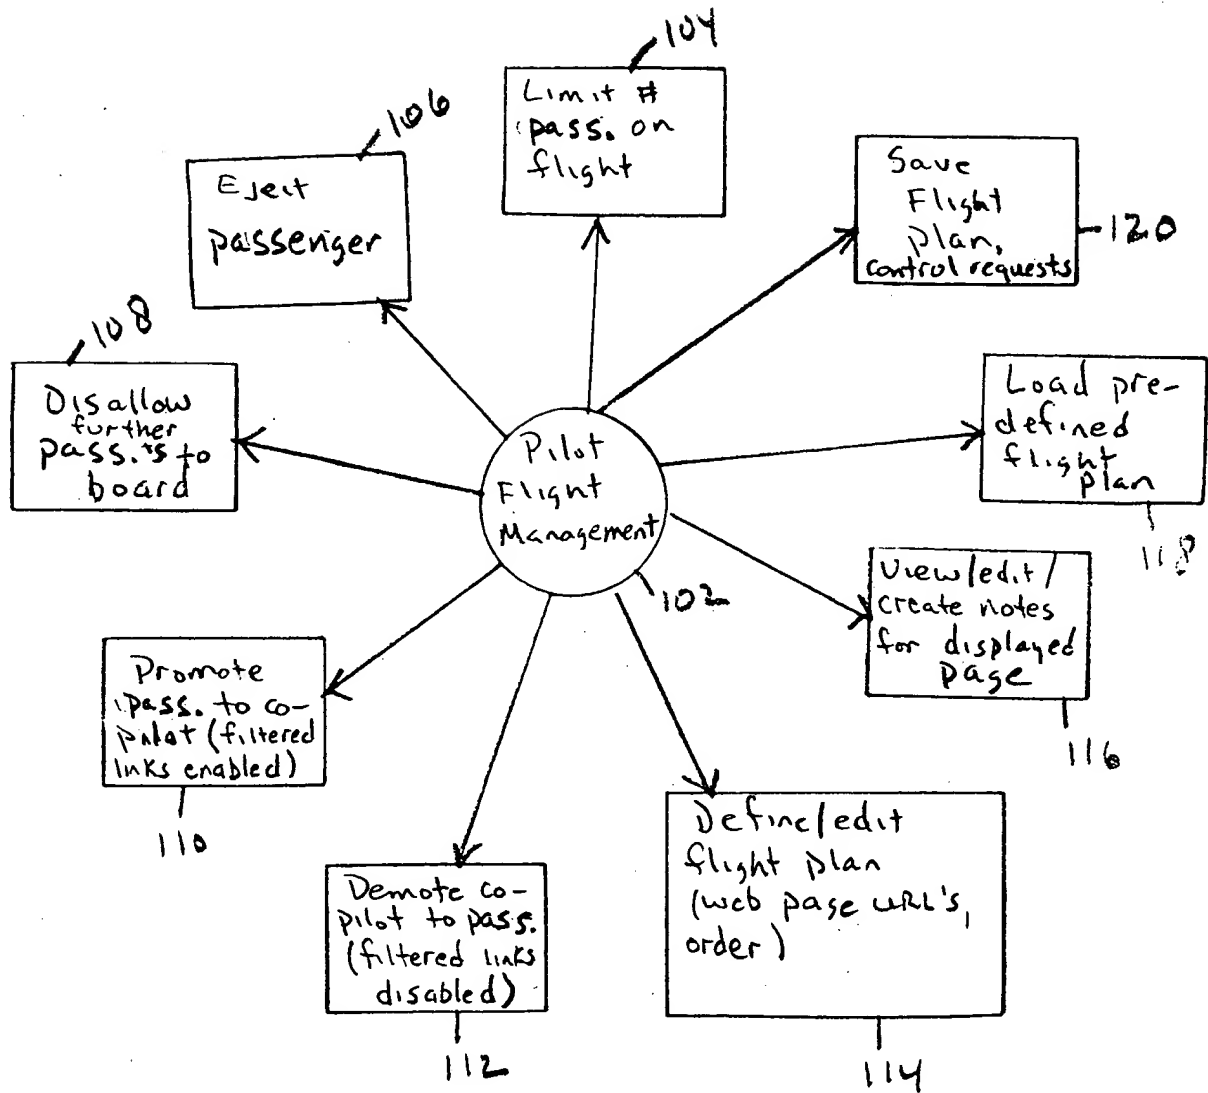 104
Limit #
pass. on
flight
106
Eject
passenger
Save
Flight
plan,
control requests
120
108
Disallow
further
pass.'s to
board
Pilot
Flight
Management
102
Load pre-
defined
flight
plan
118
View/edit/
create notes
for displayed
page
116
Promote
pass. to co-
pilot (filtered
links enabled)
110
Demote co-
pilot to pass.
(filtered links
disabled)
112
Define/edit
flight plan
(web page URL's,
order)
114